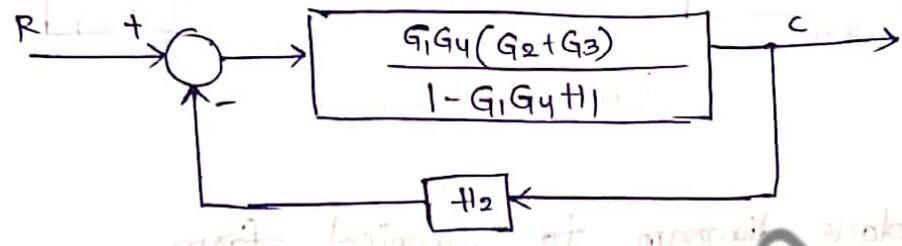 R + C
G1G4(G2+G3)
1-G1G4H1
-
H2